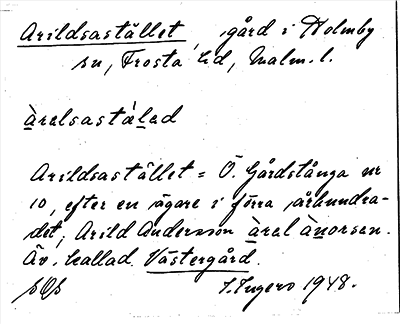 Arildsastället, gård i Holmby
sn, Frosta hd, Malm. l.
àrelsastálad
Arildsastället = Ö. Gårdstånga nr
10, efter en ägare i förra århundra-
det; Arild Andersson àrel ànorsen.
Äv. kallad Västergård.
I. Ingers 1948.